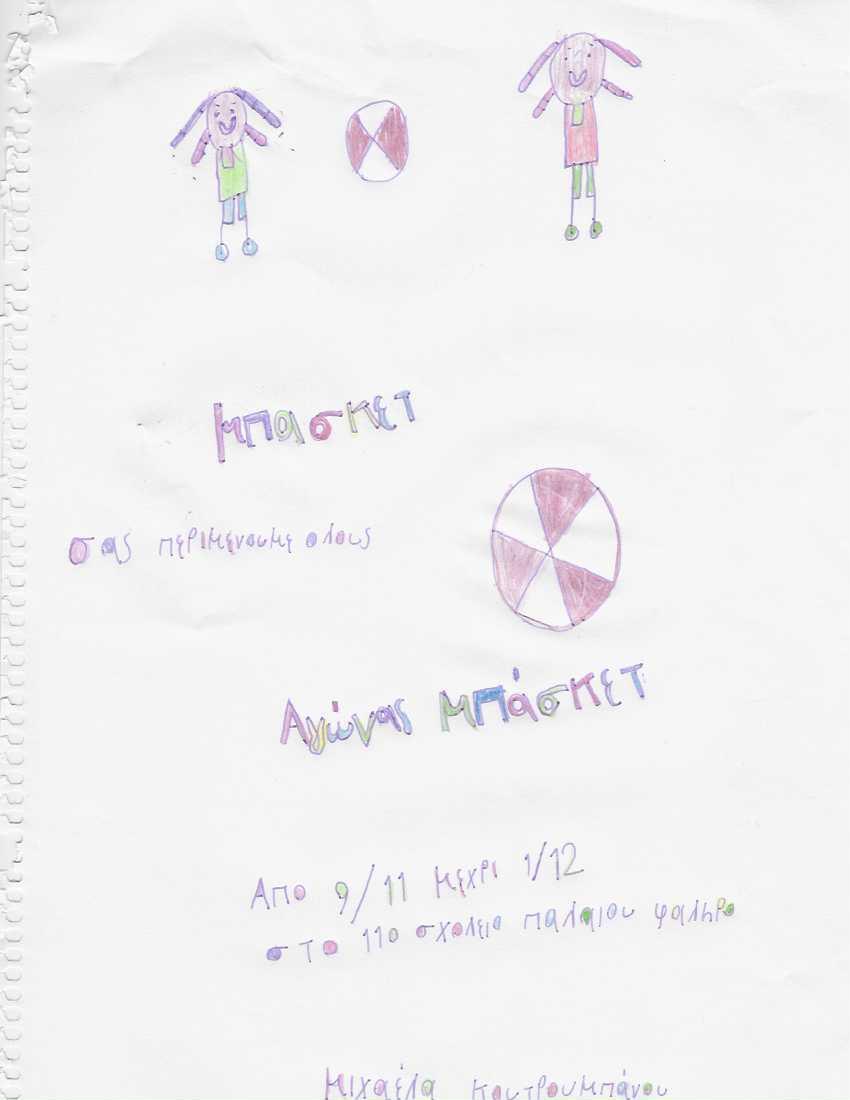 μπασκετ
σας περιμενουμε ολους
Αγώνας μπάσκετ
Απο 9/11 μεχρι 1/12
στο 11ο σχολειο παλαιου φαληρο
Μιχαέλα Κουτρουμπάνου